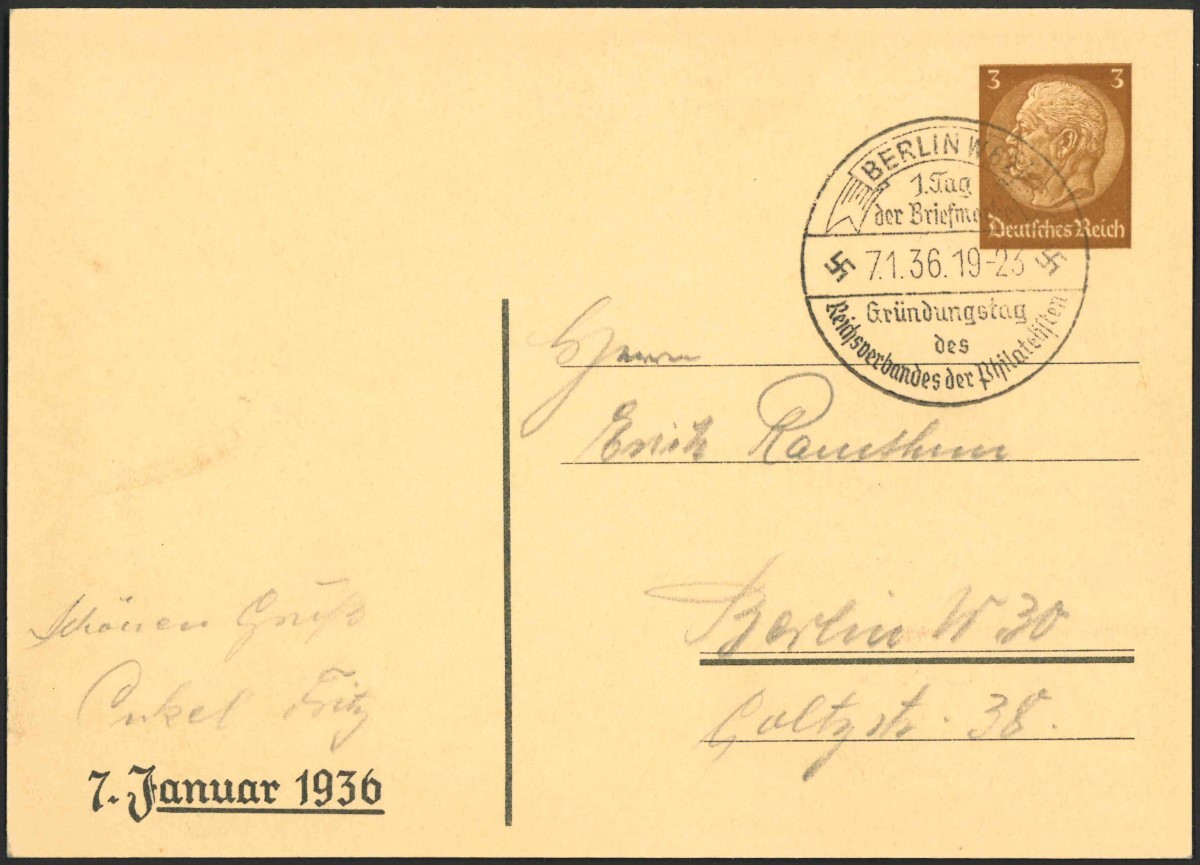 3 3
Deutsches Reich
BERLIN W
1. Tag
der Briefma
7.1.36.19-23
Gründungstag
des
Reichsverbandes der Philatelisten
Herrn
Erich Ramthun
Berlin W 30
Goltzstr. 38.
Schönen Gruß
Onkel Fritz
7. Januar 1936